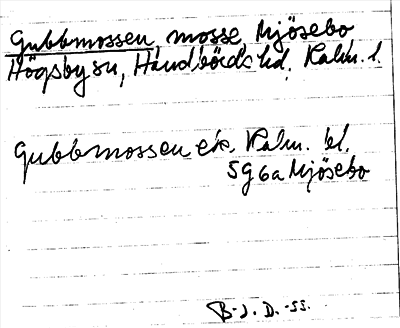 Gubbmossen, mosse, Mjösebo
Högsby sn, Handbörds hd. Kalm. l.
Gubbmossen ek. Kalm. bl.
5G 6a Mjösebo
B-J. D. -55.